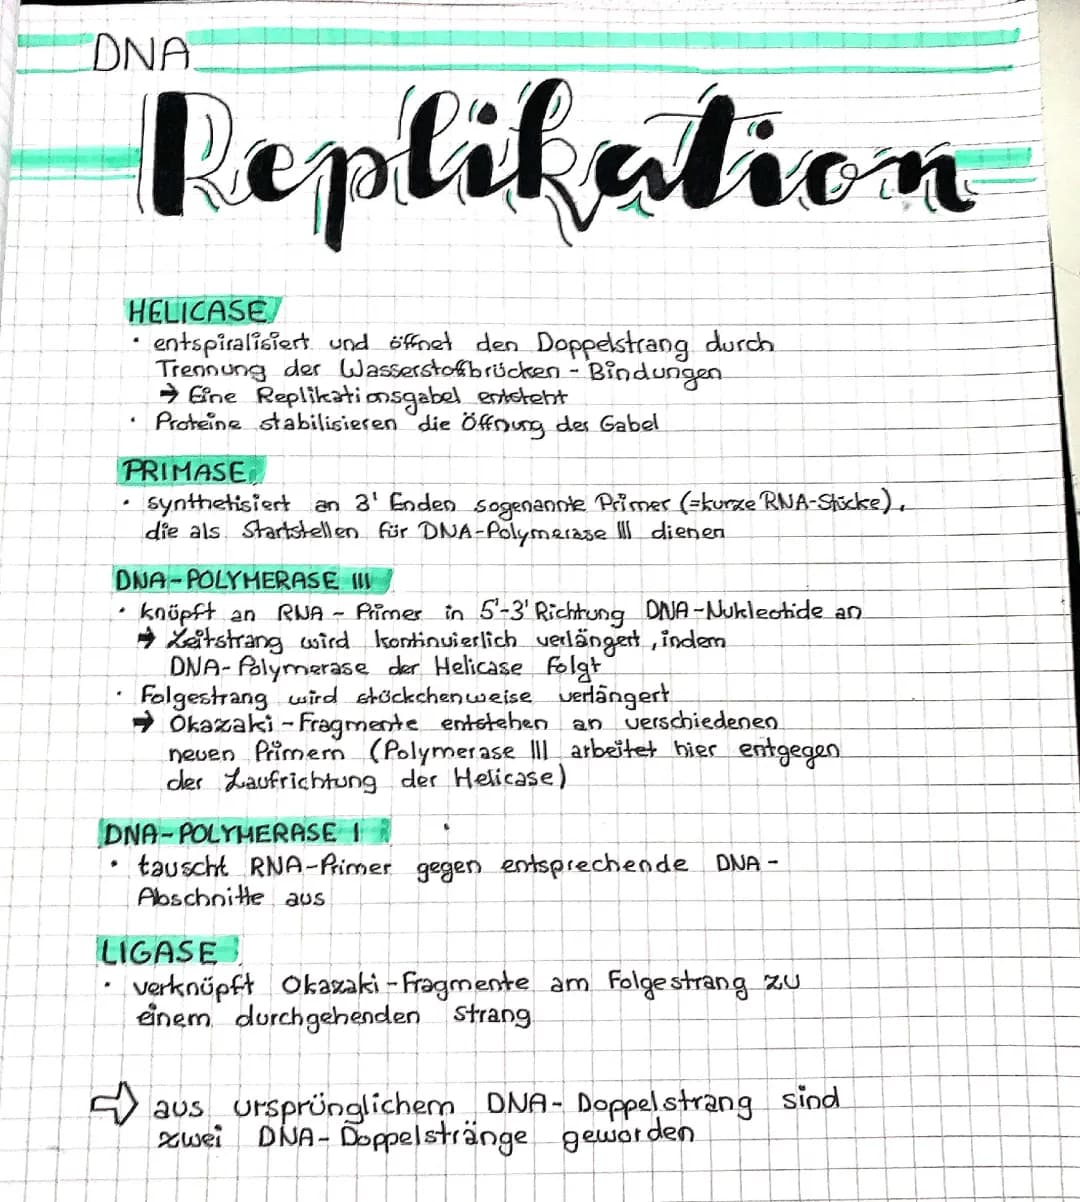 DNA
Replikation
HELICASE
• entspiralisiert und öffnet den Doppelstrang durch
Trennung der Wasserstoffbrücken - Bindungen
→ Eine Replikationsgabel entsteht
• Proteine stabilisieren die Öffnung der Gabel
PRIMASE
• synthetisiert an 3' Enden sogenannte Primer (=kurze RNA-Stücke),
die als Startstellen für DNA-Polymerase III dienen
DNA-POLYMERASE III
• knüpft an RNA - Primer in 5'-3' Richtung DNA-Nukleotide an
→ Leitstrang wird kontinuierlich verlängert, indem
DNA-Polymerase der Helicase folgt
• Folgestrang wird stückchenweise verlängert
→ Okazaki-Fragmente entstehen an verschiedenen
neuen Primern (Polymerase III arbeitet hier entgegen
der Laufrichtung der Helicase)
DNA-POLYMERASE I
• tauscht RNA-Primer gegen entsprechende DNA-
Abschnitte aus
LIGASE
• verknüpft Okazaki-Fragmente am Folgestrang zu
einem durchgehenden Strang
⇨ aus ursprünglichem DNA-Doppelstrang sind
zwei DNA-Doppelstränge geworden